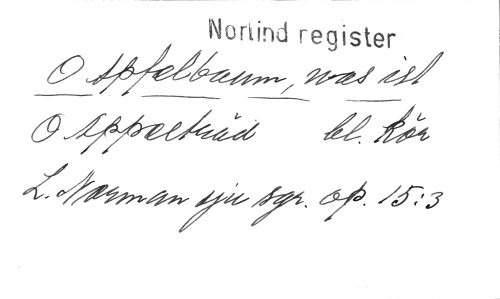 Norlind register
O Apfelbaum, was ist
O Äppelträd bl. kör
L. Norman sju sgr. op. 15:3